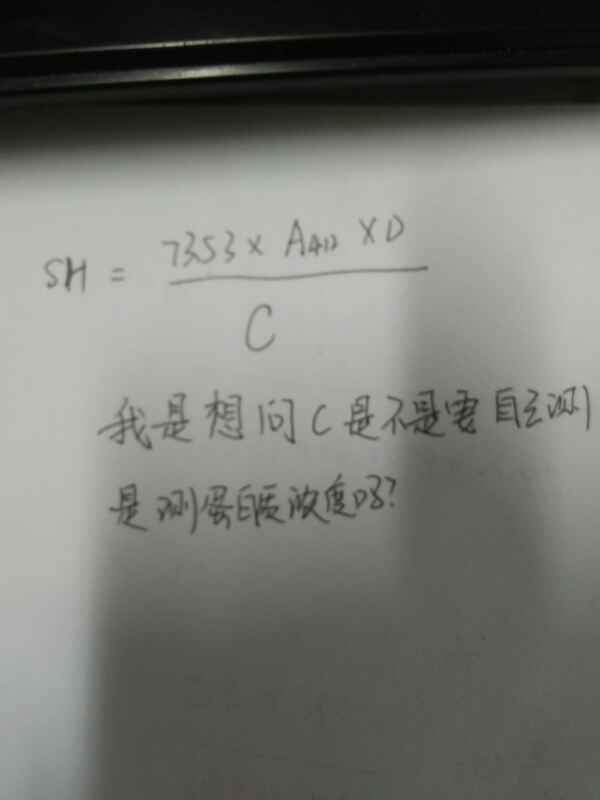 SH = 7353 × A412 × D
C
我是想问C是不是要自己测
是测蛋白质浓度吗?